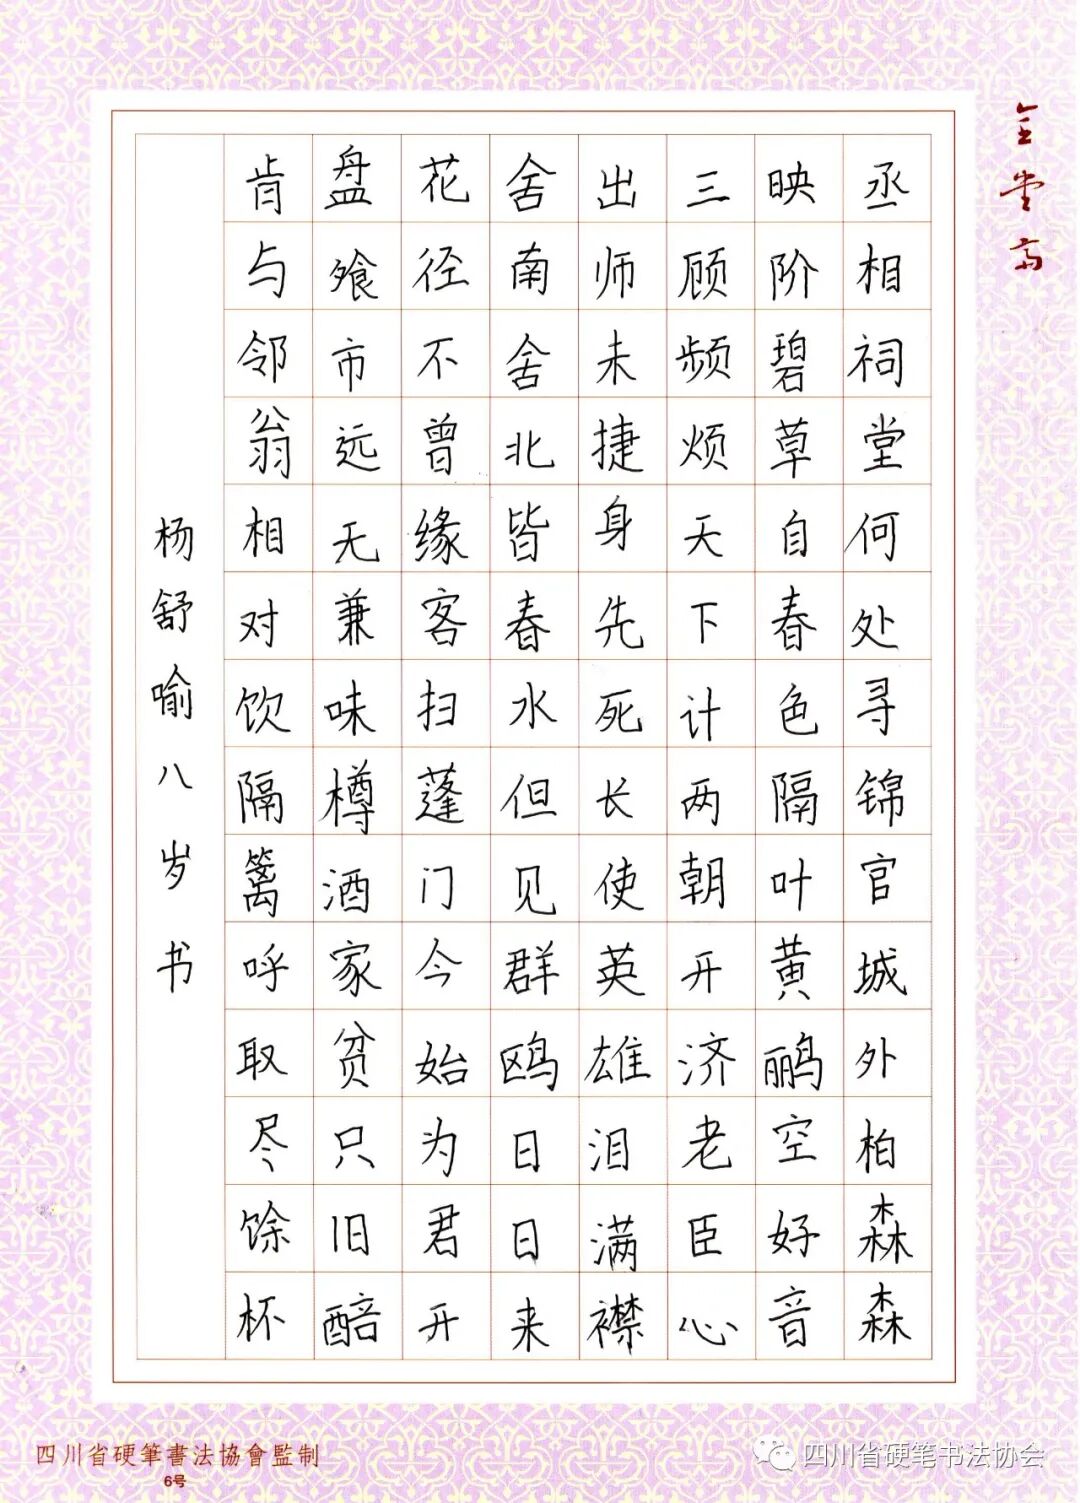 丞相祠堂何处寻锦官城外柏森森
映阶碧草自春色隔叶黄鹂空好音
三顾频烦天下计两朝开济老臣心
出师未捷身先死长使英雄泪满襟
舍南舍北皆春水但见群鸥日日来
花径不曾缘客扫蓬门今始为君开
盘飧市远无兼味樽酒家贫只旧醅
肯与邻翁相对饮隔篱呼取尽馀杯
杨舒喻八岁书
四川省硬筆書法協會監制
6号
四川省硬笔书法协会